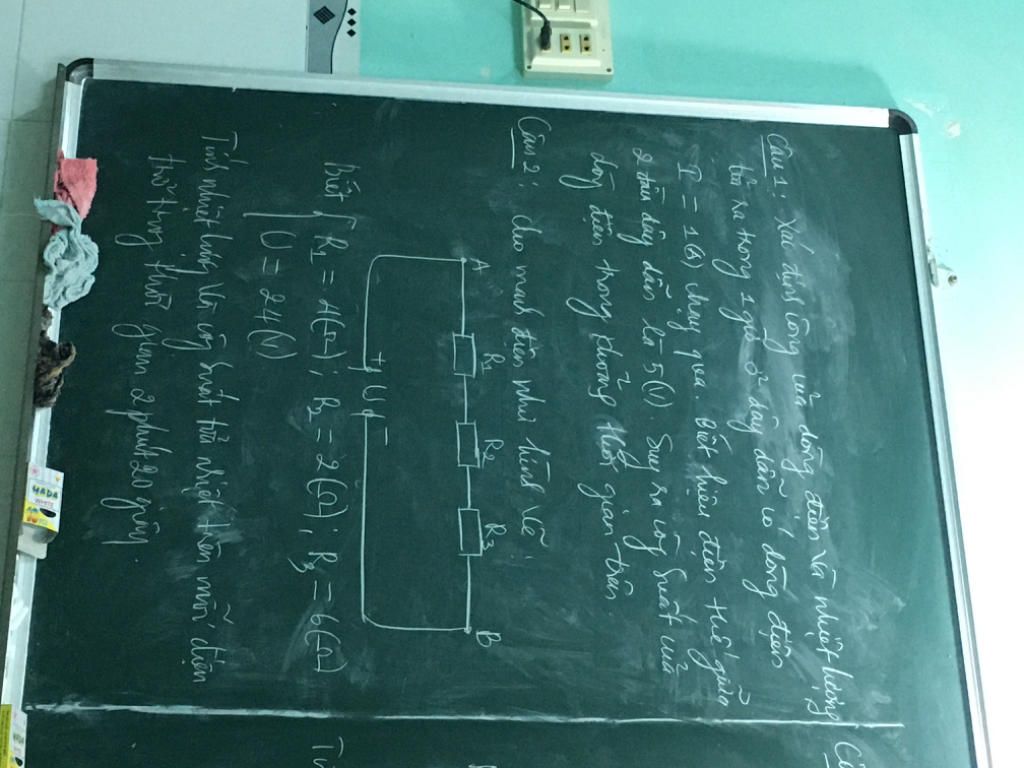 Câu 1: Xác định công của dòng điện và nhiệt lượng
tỏa ra trong 1 giờ ở dây dẫn có dòng điện
I = 1(A) chạy qua. Biết hiệu điện thế giữa
2 đầu dây dẫn là 5(V). Suy ra công suất của
dòng điện trong khoảng thời gian trên
Câu 2: Cho mạch điện như hình vẽ:
A R1 R2 R3 B
+ U -
Biết R1 = 4(Ω); R2 = 2(Ω); R3 = 6(Ω)
U = 24(V)
Tính nhiệt lượng và công suất tỏa nhiệt trên mỗi điện
trở trong thời gian 2 phút 20 giây.
HADA
WHITE